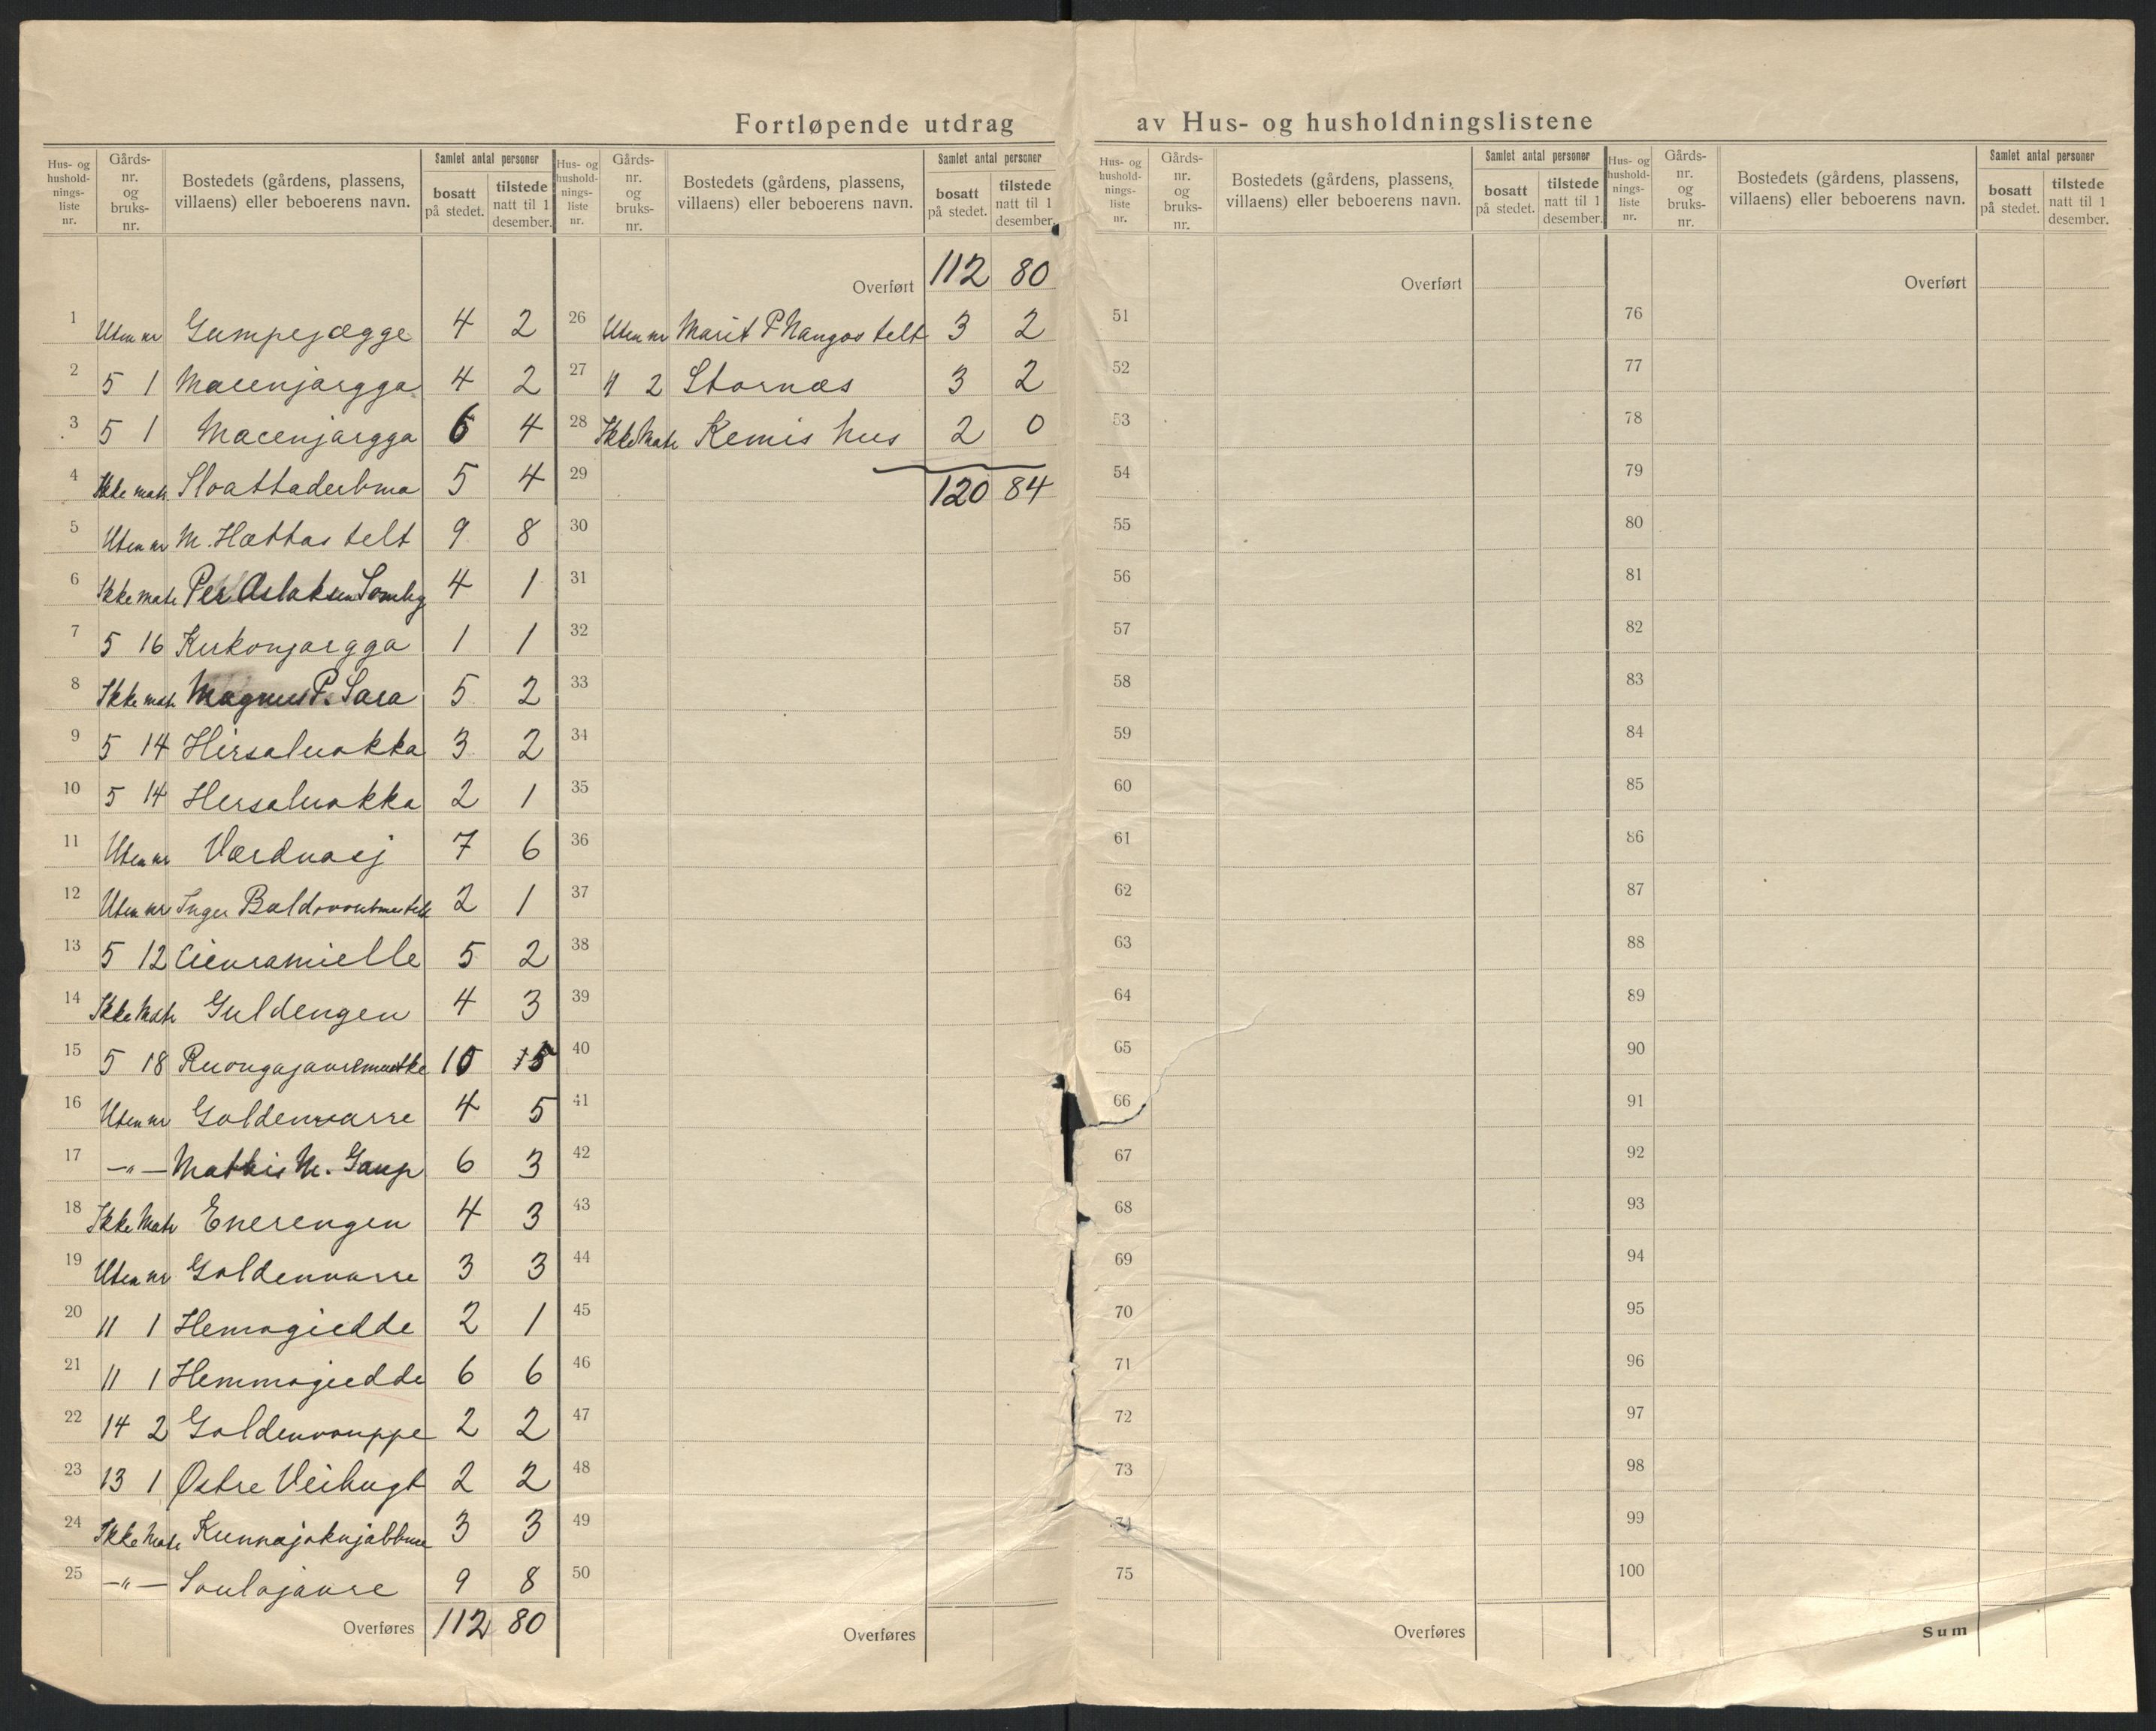 Fortløpende utdrag av Hus- og husholdningslistene
Hus- og hushold-nings-liste nr. Gårds-nr. og bruks-nr. Bostedets (gårdens, plassens, villaens) eller beboerens navn. Samlet antal personer bosatt på stedet. tilstede natt til 1 desember.
1 Uten nr Gumpejægge 4 2
2 5 1 Macenjargga 4 2
3 5 1 Macenjargga 6 4
4 Ikke matr. Sloattaderbma 5 4
5 Uten nr M. Hættas telt 9 8
6 Ikke matr Per Aslaksen Somby 4 1
7 5 16 Kukonjargga 1 1
8 Ikke matr Magnus P. Sara 5 2
9 5 14 Hirsaluokka 3 2
10 5 14 Hirsaluokka 2 1
11 Uten nr Værdnasj 7 6
12 Uten nr Inger 2 1
13 5 12 Cievramielle 5 2
14 Ikke Matr Guldengen 4 3
15 5 18 10 5
16 Uten nr Goldenvarre 4 5
17 —"— Mathis M. Gaup 6 3
18 Ikke Matr Enerengen 4 3
19 Uten nr Goldenvarre 3 3
20 11 1 Hemogiedde 2 1
21 11 1 Hemmogiedde 6 6
22 14 2 Goldenvouppe 2 2
23 13 1 Østre Veibugt 2 2
24 Ikke Matr Kunnajoknjabbme 3 3
25 —"— Soulojavre 9 8
Overføres 112 80
Hus- og hushold-nings-liste nr. Gårds-nr. og bruks-nr. Bostedets (gårdens, plassens, villaens) eller beboerens navn. Samlet antal personer bosatt på stedet. tilstede natt til 1 desember.
Overført 112 80
26 Uten nr Marit P Nangos telt 3 2
27 11 2 Stornæs 3 2
28 Ikke Matr Kemis hus 2 0
29 120 84
30
31
32
33
34
35
36
37
38
39
40
41
42
43
44
45
46
47
48
49
50
Overføres
Hus- og hushold-nings-liste nr. Gårds-nr. og bruks-nr. Bostedets (gårdens, plassens, villaens) eller beboerens navn. Samlet antal personer bosatt på stedet. tilstede natt til 1 desember.
Overført
51
52
53
54
55
56
57
58
59
60
61
62
63
64
65
66
67
68
69
70
71
72
73
74
75
Overføres
Hus- og hushold-nings-liste nr. Gårds-nr. og bruks-nr. Bostedets (gårdens, plassens, villaens) eller beboerens navn. Samlet antal personer bosatt på stedet. tilstede natt til 1 desember.
Overført
76
77
78
79
80
81
82
83
84
85
86
87
88
89
90
91
92
93
94
95
96
97
98
99
100
Sum